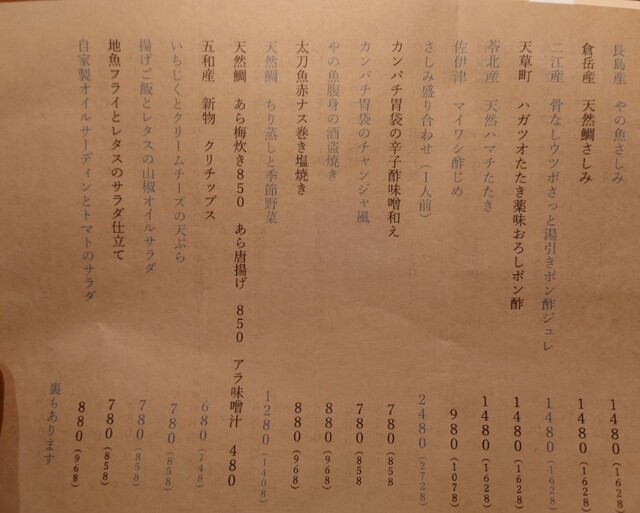 長島産 やの魚さしみ 1480(1628)
倉岳産 天然鯛さしみ 1480(1628)
二江産 骨なしウツボさっと湯引きポン酢ジュレ 1480(1628)
天草町 ハガツオたたき薬味おろしポン酢 1480(1628)
苓北産 天然ハマチたたき 1480(1628)
佐伊津 マイワシ酢じめ 980(1078)
さしみ盛り合わせ(1人前) 2480(2728)
カンパチ胃袋の辛子酢味噌和え 780(858
カンパチ胃袋のチャンジャ風 780(858
やの魚腹身の酒盗焼き 880(968)
太刀魚赤ナス巻き塩焼き 880(968)
天然鯛 ちり蒸しと季節野菜 1280(1408)
天然鯛 あら梅炊き850 あら唐揚げ 850 アラ味噌汁 480
五和産 新物 クリチップス 680(748)
いちじくとクリームチーズの天ぷら 780(858)
揚げご飯とレタスの山椒オイルサラダ 780(858)
地魚フライとレタスのサラダ仕立て 780(858)
自家製オイルサーディンとトマトのサラダ 880(968)
裏もあります